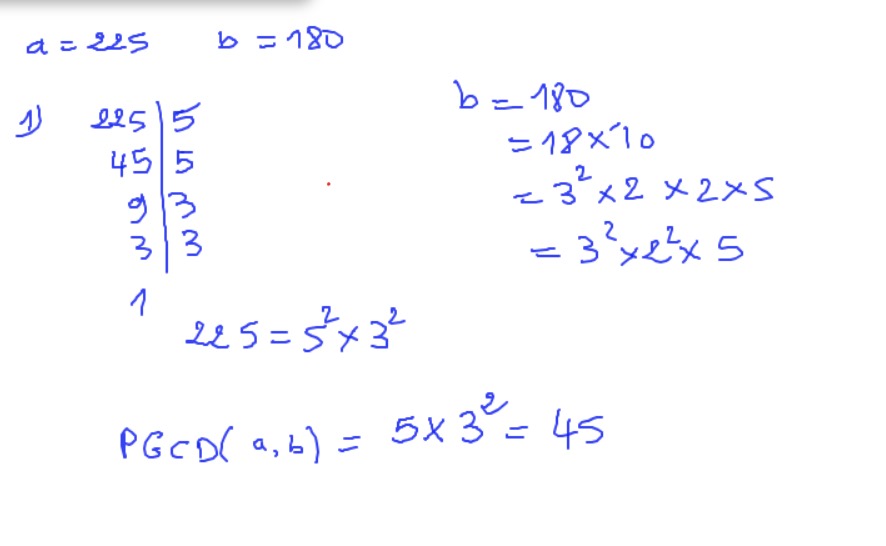 a = 225 b = 180
1) 225 | 5
45 | 5
9 | 3
3 | 3
1
225 = 5² × 3²
b = 180
= 18 × 10
= 3² × 2 × 2 × 5
= 3² × 2² × 5
PGCD( a, b) = 5 × 3² = 45